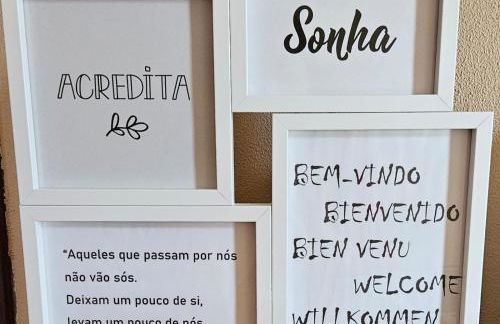 ACREDITA
Sonha
BEM-VINDO
BIENVENIDO
BIEN VENU
WELCOME
WILLKOMMEN
"Aqueles que passam por nós
não vão sós.
Deixam um pouco de si,
levam um pouco de nós